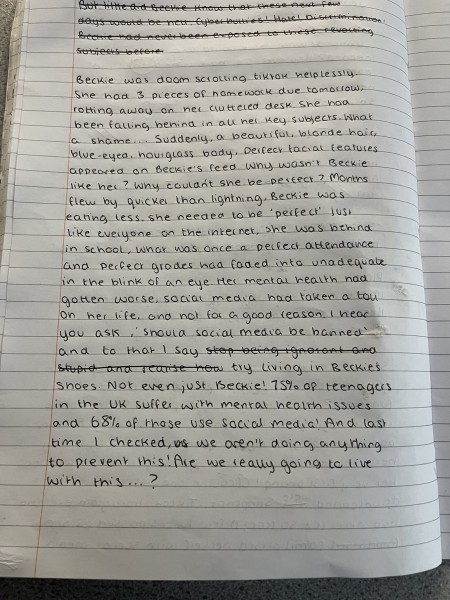 But little did Beckie know that these next few
days would be hell. Cyberbullies! Hate! Discrimination!
Beckie had never been exposed to these revolting
subjects before.
Beckie was doom scrolling tiktok helplessly.
She had 3 pieces of homework due tomorrow,
rotting away on her cluttered desk she had
been falling behind in all her key subjects. What
a shame... Suddenly, a beautiful, blonde hair,
blue-eyed, hourglass body, perfect facial features
appeared on Beckie's feed why wasn't Beckie
like her? Why couldn't she be perfect? Months
flew by quicker than lightning, Beckie was
eating less, she needed to be 'perfect' just
like everyone on the internet, she was behind
in school, what was once a perfect attendance
and perfect grades had faded into unadequate
in the blink of an eye Her mental health had
gotten worse, social media had taken a toll
on her life, and not for a good reason I hear
you ask, 'should social media be banned'
and to that I say stop being ignorant and
stupid and realise how try living in Beckie's
shoes. Not even just Beckie! 75% of teenagers
in the UK suffer with mental health issues
and 68% of those use social media! And last
time I checked, we aren't doing anything
to prevent this! Are we really going to live
with this...?